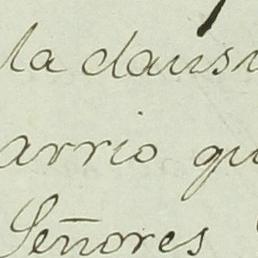 la claus
arrio qu
Señores